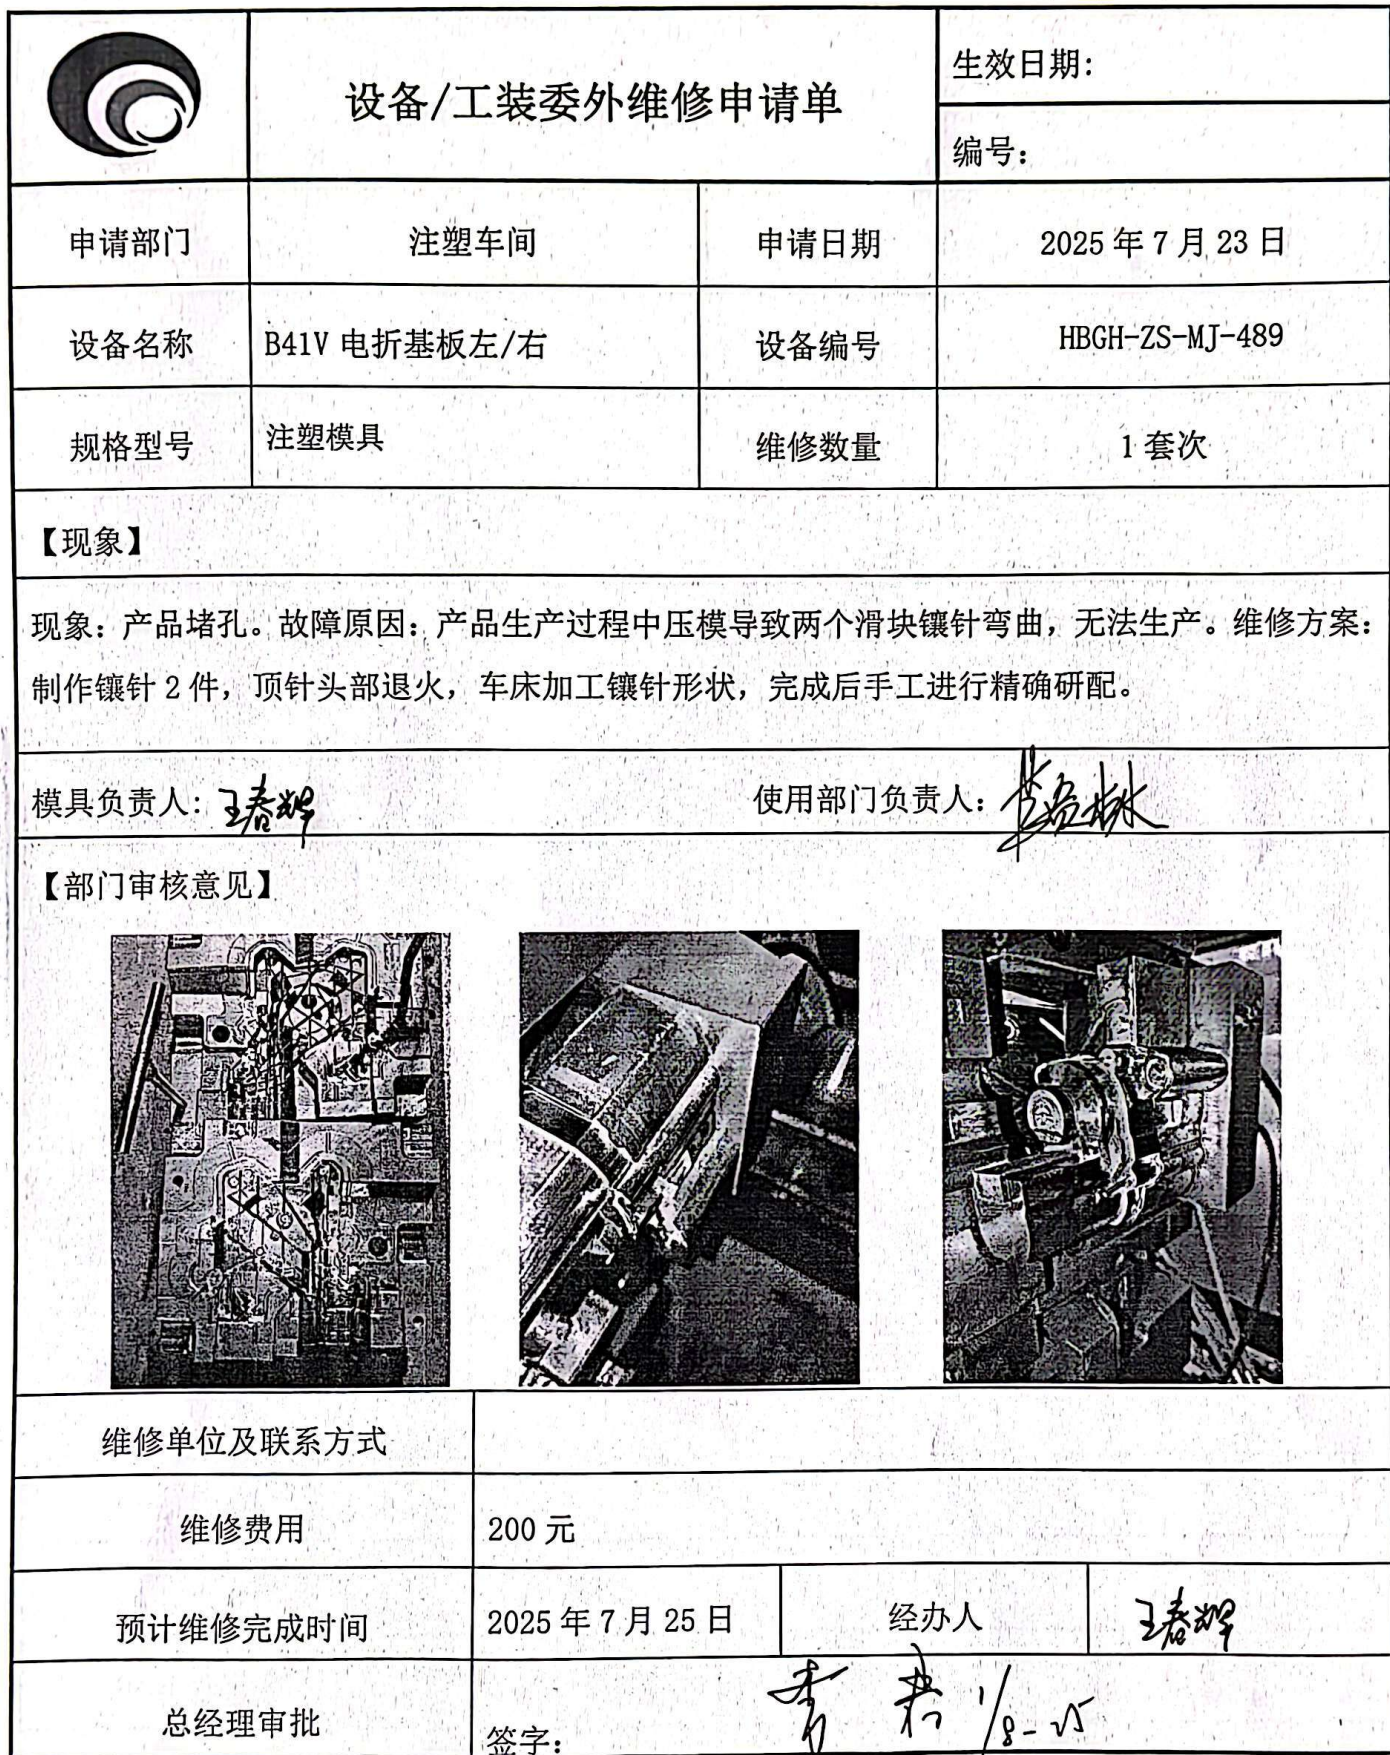 设备/工装委外维修申请单
生效日期:
编号:
申请部门 注塑车间 申请日期 2025年7月23日
设备名称 B41V 电折基板左/右 设备编号 HBGH-ZS-MJ-489
规格型号 注塑模具 维修数量 1套次
【现象】
现象:产品堵孔。故障原因:产品生产过程中压模导致两个滑块镶针弯曲,无法生产。维修方案:
制作镶针2件,顶针头部退火,车床加工镶针形状,完成后手工进行精确研配。
模具负责人:王春辉 使用部门负责人:
【部门审核意见】
维修单位及联系方式
维修费用 200元
预计维修完成时间 2025年7月25日 经办人 王春辉
总经理审批 签字: 1/8-25